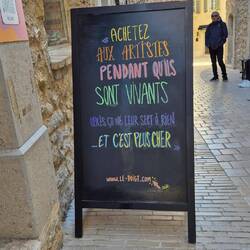 ACHETEZ
AUX ARTISTES
PENDANT QU'ILS
SONT VIVANTS
APRÈS ÇA NE LEUR SERT À RIEN
... ET C'EST PLUS CHER
www.LE-DOIGT.com